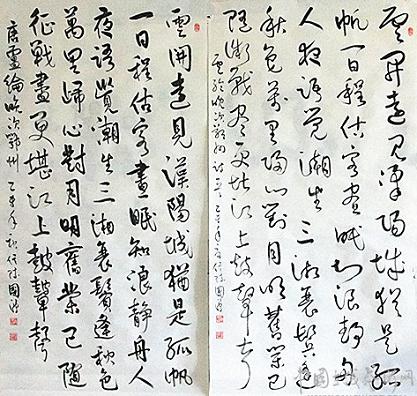 雲開遠見漢陽城猶是孤
帆一日程估客晝眠知浪静舟
人夜語覺潮生三湘衰鬢逢
秋色萬里歸心對月明舊業已
随征戰盡更堪江上鼓鼙声
盧綸晚次鄂州詩一首
雲開遠見漢陽城猶是孤帆
一日程估客晝眠知浪静舟人
夜語覺潮生三湘衰鬢逢秋色
萬里歸心對月明舊業已随
征戰盡更堪江上鼓鼙聲
唐盧綸晚次鄂州